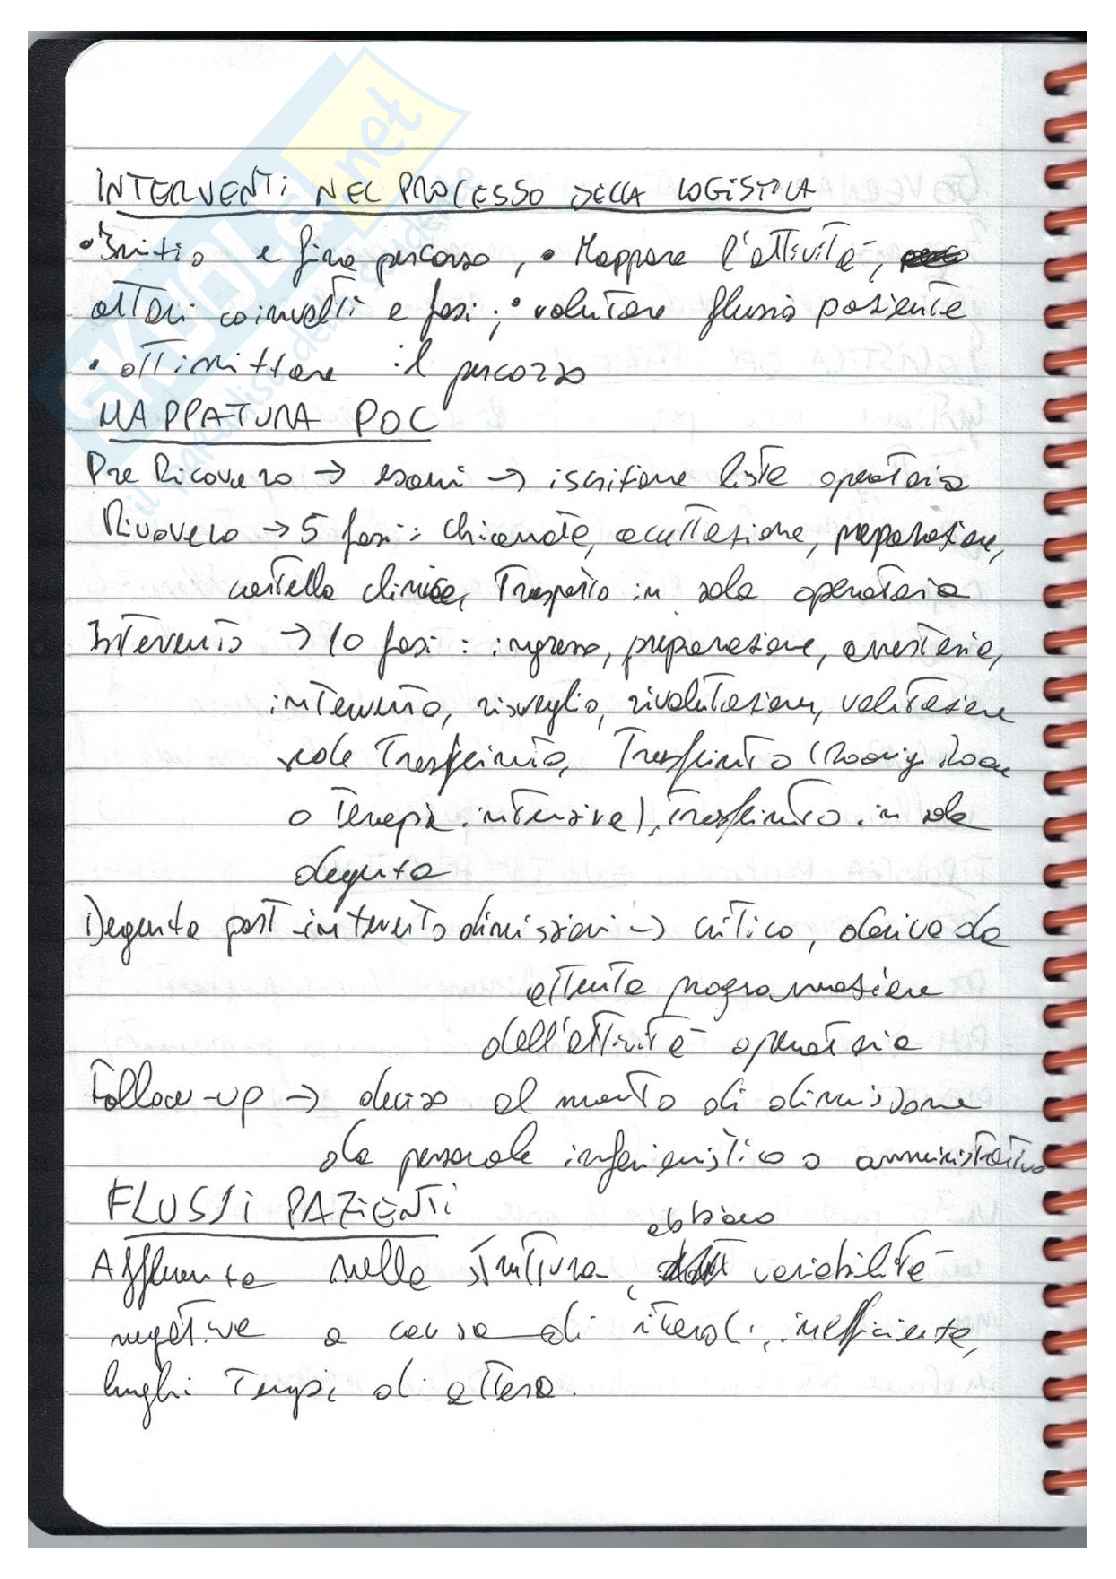 INTERVENTI NEL PROCESSO DELLA LOGISTICA
• Inizio e fine percorso, • Mappare l'attività,
attori coinvolti e fasi; • valutare flusso paziente
• ottimizzare il percorso
MAPPATURA POC
Pre Ricovero → esami → iscrizione lista operatoria
Ricovero → 5 fasi: chiamata, accettazione, preparazione,
cartella clinica, Trasporto in sala operatoria
Intervento → 10 fasi: ingresso, preparazione, anestesia,
intervento, risveglio, rivalutazione, valutazione
sala Trasferimento, Trasferimento (Recovery Room
o Terapia intensiva), trasferimento in sala
degenza
Degenza post intervento dimissioni → critico, deriva da
attenta programmazione
dell'attività operatoria
Follow-up → deciso al momento di dimissione
da personale infermieristico o amministrativo
FLUSSI PAZIENTI
abbiamo
Affluenza nella struttura, variabilità
negativa a causa di ritardi, inefficienze,
lunghi Tempi di attesa.
skuola.net